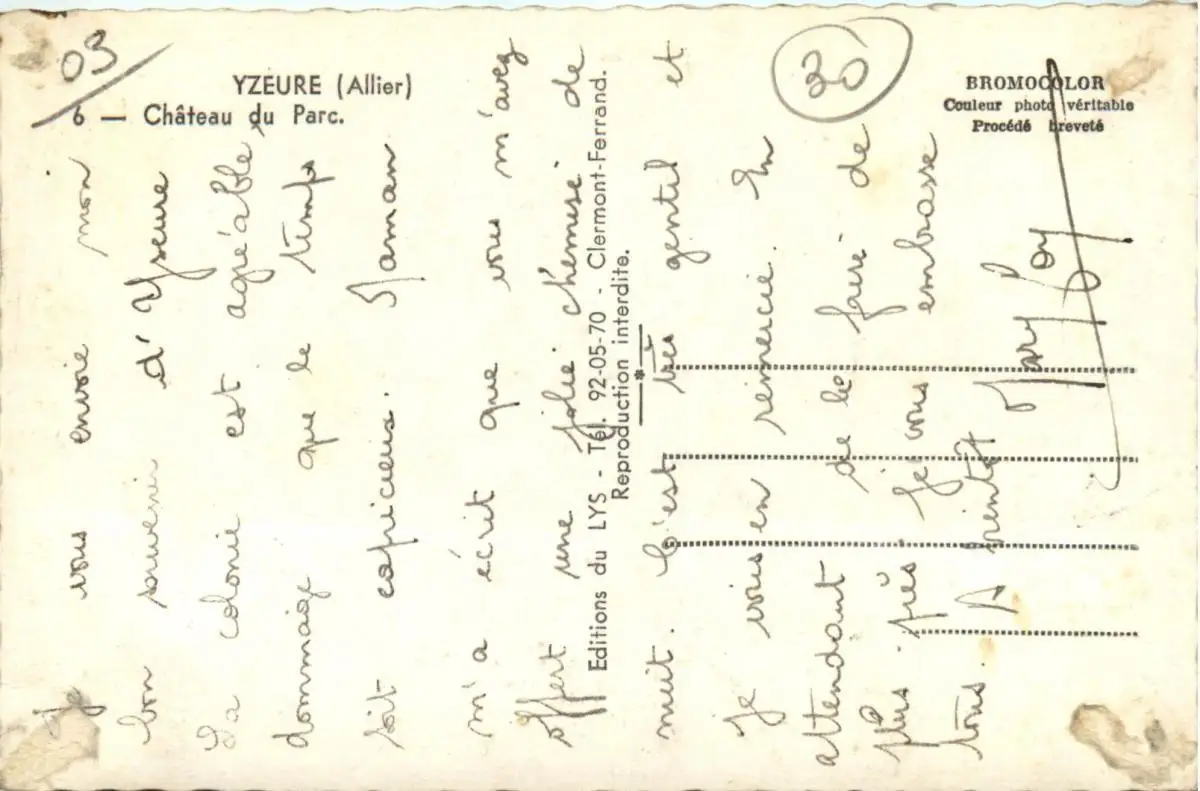 03
YZEURE (Allier)
6 — Château du Parc.
20
BROMOCOLOR
Couleur photo véritable
Procédé breveté
Editions du LYS - Tél. 92-05-70 - Clermont-Ferrand.
Reproduction interdite.
Je vous envoie mon
bon souveni d'Yseure
La colonie est agréable,
dommage que le temps
soit capricieus. Maman
m'a écrit que vous m'avez
offert une jolie chemise de
nuit. C'est très gentil et
je vous en remercie. En
attendant de le faire de
plus près je vous embrasse
tous. A bientôt